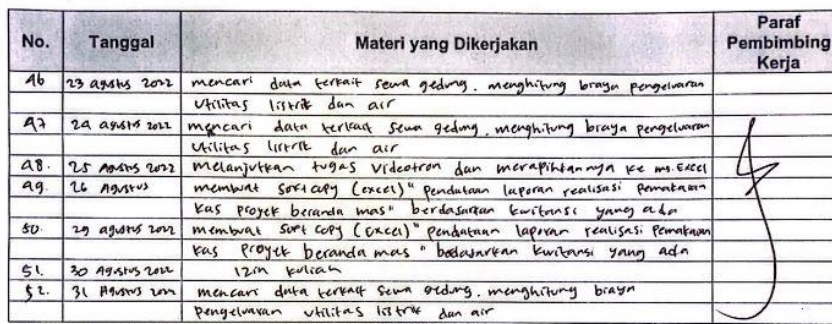 No. Tanggal Materi yang Dikerjakan Paraf Pembimbing Kerja
46 23 agustus 2022 mencari data terkait sewa gedung, menghitung biaya pengeluaran
utilitas listrik dan air
47 24 agustus 2022 mencari data terkait sewa gedung, menghitung biaya pengeluaran
utilitas listrik dan air
48. 25 Agustus 2022 melanjutkan tugas videotron dan merapihkannya ke ms. Excel
49. 26 Agustus membuat soft copy (excel) " pendataan laporan realisasi pemakaian
kas proyek beranda mas " berdasarkan kwitansi yang ada
50. 29 agustus 2022 membuat soft copy (excel) " pendataan laporan realisasi pemakaian
kas proyek beranda mas " bedasarkan kwitansi yang ada
51. 30 Agustus 2022 izin kuliah
52. 31 Agustus 2022 mencari data terkait sewa gedung, menghitung biaya
pengeluaran utilitas listrik dan air